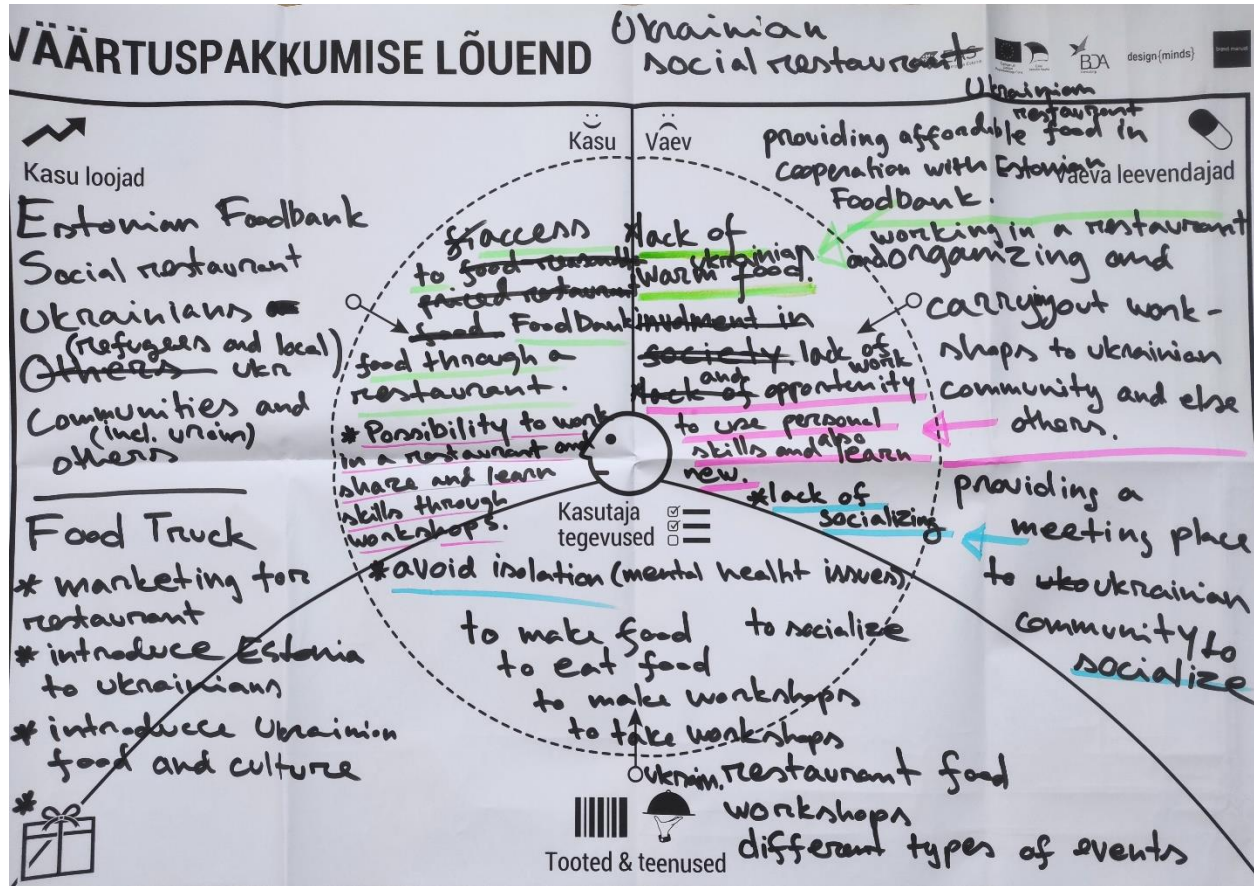 VÄÄRTUSPAKKUMISE LÕUEND
Ukrainian
social restaurant
BDA
design{minds}
brand manual
Kasu loojad
Estonian Foodbank
Social restaurant
Ukrainians
(refugees and local)
Others ukr
Communities and
(incl. ukrain)
others
Food Truck
* marketing for
restaurant
* introduce Estonia
to ukrainians
* introducce Ukrainian
food and culture
*
Kasu
access
to food reasonable
priced restaurant
food FoodBank
food through a
restaurant.
* Possibility to work
in a restaurant and
share and learn
skills through
workshops.
* avoid isolation (mental healht issues)
Vaev
*lack of
ukrainian
warm food.
involment in
society. lack of
work
and
*lack of opportunity
to use personal
also
skills and learn
new.
*lack of
socializing
Ukrainian
restaurant
providing affordable food in
cooperation with Estonian
Foodbank.
Vaeva leevendajad
working in a restaurant
and organizing and
carrying out work-
shops to ukrainian
community and else
others.
providing a
meeting place
to uko ukrainian
community to
socialize
Kasutaja
tegevused
to make food
to socialize
to eat food
to make workshops
to take workshops
ukrain. restaurant food
workshops
different types of events
Tooted & teenused